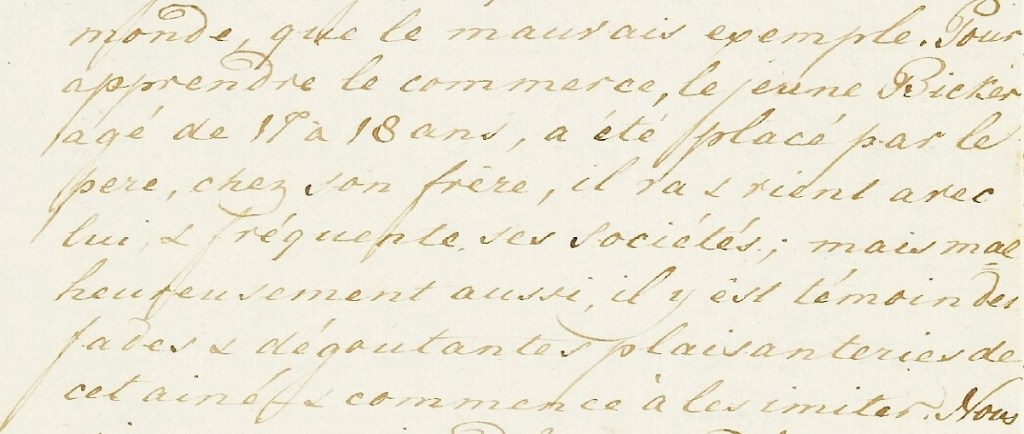 monde, que le mauvais exemple. Pour
apprendre le commerce, le jeune Bicker
agé de 17 à 18 ans, a été placé par le
pere, chez son frère, il va & vient avec
lui, & fréquente ses sociétés; mais mal
heureusement aussi, il y est témoin des
fades & dégoutantes plaisanteries de
cet ainé, & commence à les imiter. Nous